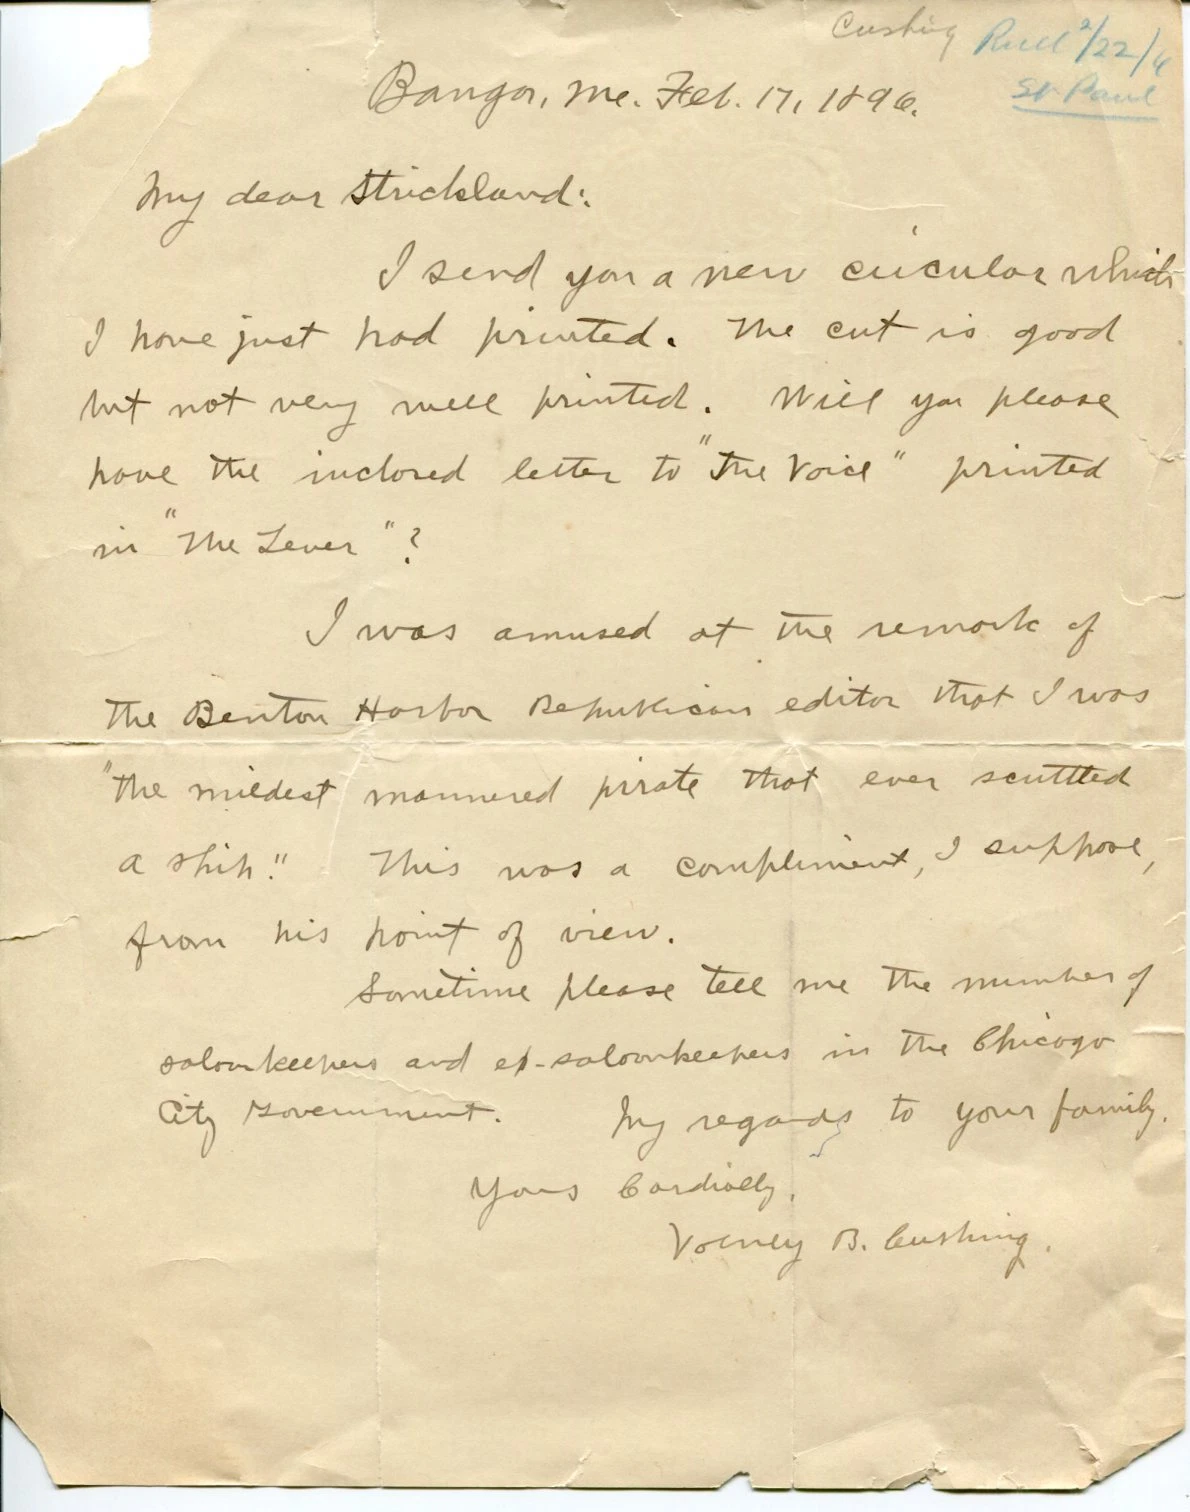 Cushing Rec'd 2/22/6
St Paul
Bangor, Me. Feb. 17, 1896.
My dear Strickland:
I send you a new circular which
I have just had printed. The cut is good
but not very well printed. Will you please
have the inclosed letter to "The Voice" printed
in "The Lever"?
I was amused at the remark of
the Benton Harbor Republican editor that I was
"the mildest mannered pirate that ever scuttled
a ship." This was a compliment, I suppose,
from his point of view.
Sometime please tell me the number of
saloonkeepers and ex-saloonkeepers in the Chicago
City Government. My regards to your family.
Yours Cordially,
Volney B. Cushing.